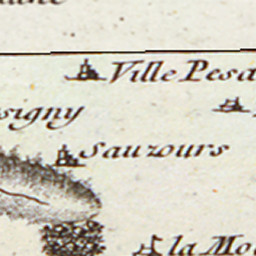 Ville Pesa
signy
Sauzours
la Mo